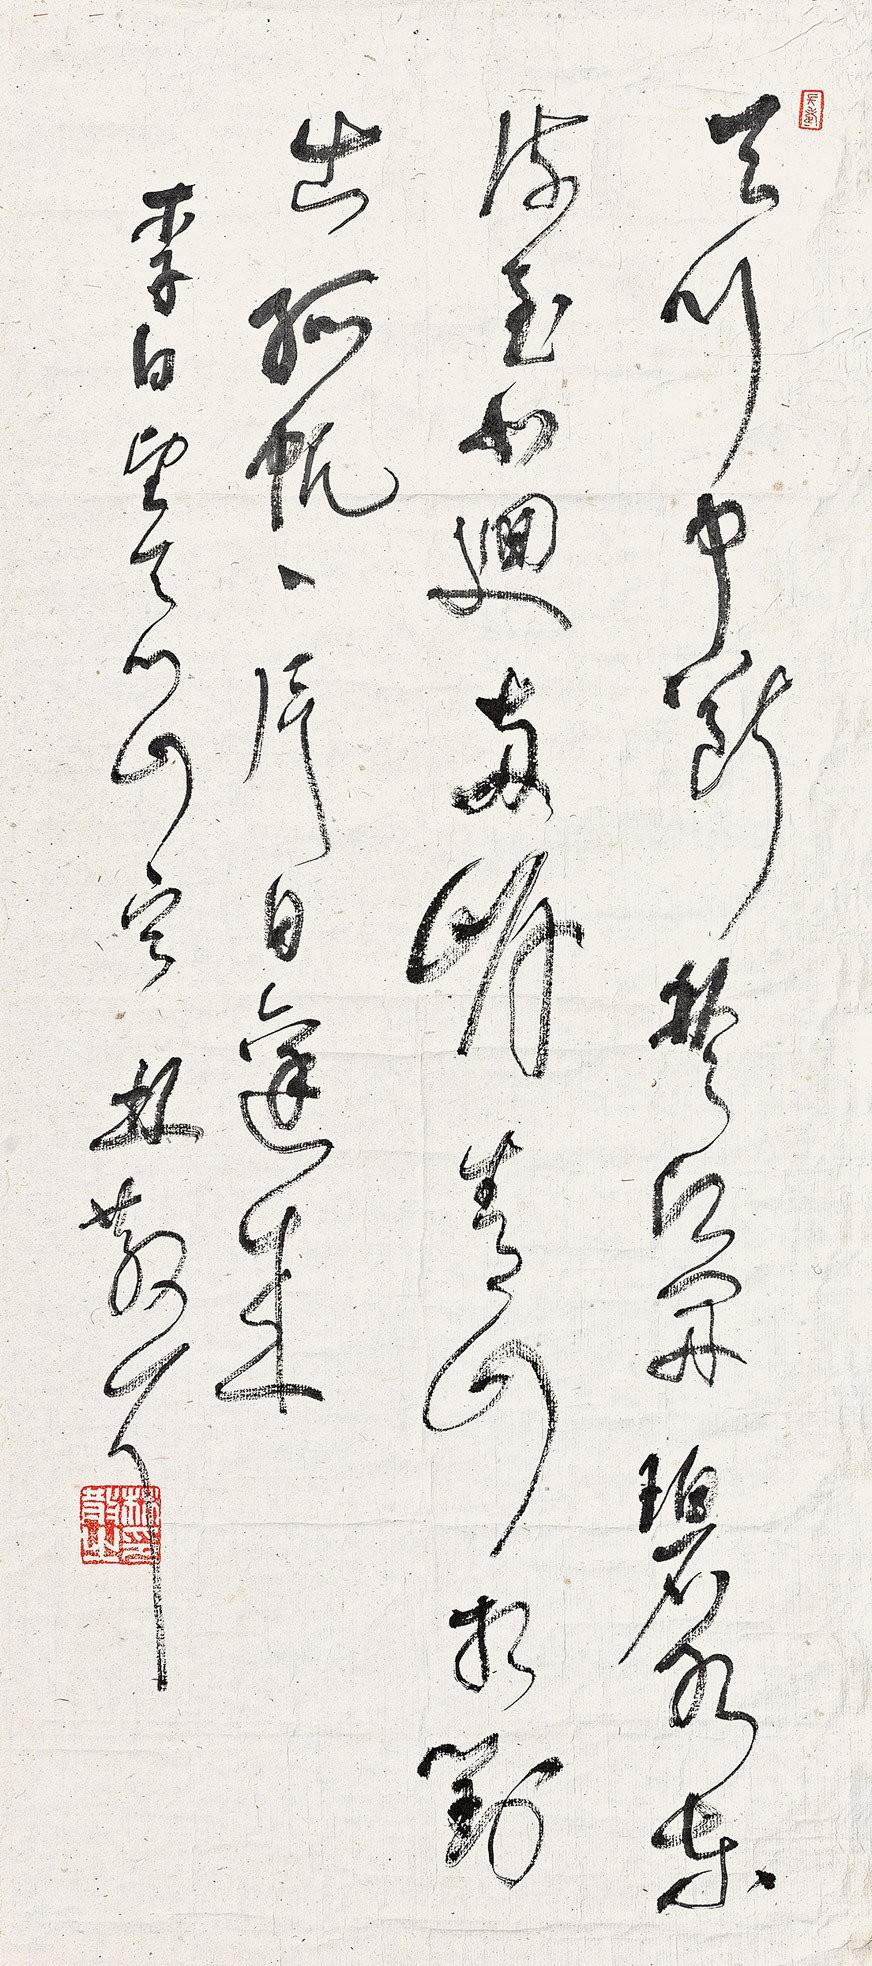 天門中斷楚江開碧水東
流至此迴兩岸青山相對
出孤帆一片日邊來
李白望天門山 林散耳
林散之印